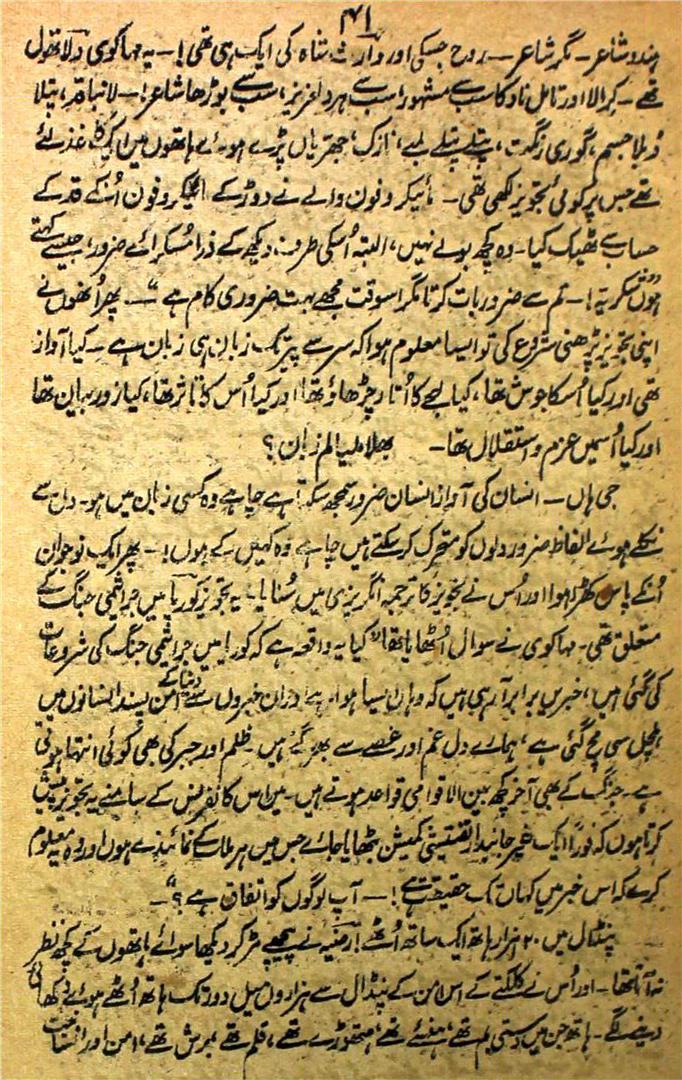 ۳۴۱
ہندو شاعر۔ مگر شاعر — روح جسکی اور وارث شاہ کی ایک ہی تھی! — یہ مہاکوی ولاتھول
تھے — کرالا اور تامل ناد کا سب سے مشہور، سب سے ہردلعزیز، سب سے بوڑھا شاعر! — لانبا قد، پتلا
دُبلا جسم، گوری رنگت، پتلے پتلے لمبے، نازک، جھریاں پڑے ہوئے ہاتھوں میں ایک کاغذ لئے
تھے جس پر کوئی تجویز لکھی تھی۔ مائیکروفون والے نے دوڑ کے مائیکروفون اُنکے قد کے
حساب سے ٹھیک کیا۔ وہ کچھ بولے نہیں، البتہ اُسکی طرف دیکھ کے ذرا مُسکرائے ضرور جیسے کہتے
ہوں "شکریہ! — تم سے ضرور بات کرتا مگر اسوقت مجھے بہت ضروری کام ہے" — پھر اُنھوں نے
اپنی تجویز پڑھنی شروع کی تو ایسا معلوم ہوا کہ سر سے پیر تک زبان ہی زبان ہے — کیا آواز
تھی اور کیا اُسکا جوش تھا، کیا لہجے کا اُتار چڑھاؤ تھا اور کیا اُس کا تاثر تھا، کیا زور بیان تھا
اور کیا اُسمیں عزم و استقلال تھا۔ بھلا ملیالم زبان؟
جی ہاں — انسان کی آواز انسان ضرور سمجھ سکتا ہے چاہے وہ کسی زبان میں ہو۔ دل سے
نکلے ہوئے الفاظ ضرور دلوں کو متحرک کر سکتے ہیں چاہے وہ کہیں کے ہوں! — پھر ایک نوجوان
اُنکے پاس کھڑا ہوا اور اُس نے تجویز کا ترجمہ انگریزی میں سُنایا۔ یہ تجویز کوریا میں جراثیمی جنگ کے
متعلق تھی۔ مہاکوی نے سوال اُٹھایا تھا "کیا یہ واقعہ ہے کہ کوریا میں جراثیمی جنگ کی شروعات
کی گئی ہیں، خبریں برابر آ رہی ہیں کہ وہاں ایسا ہوا ہے، ان خبروں سے دنیا کے امن پسند انسانوں میں
ہلچل سی مچ گئی ہے، ہمارے دل غم اور غصے سے بھر گئے ہیں۔ ظلم اور جبر کی بھی کوئی انتہا ہوتی
ہے۔ جنگ کے بھی آخر کچھ بین الاقوامی قواعد ہوتے ہیں۔ میں اس کانفرنس کے سامنے یہ تجویز پیش
کرتا ہوں کہ فوراً ایک غیر جانبدار تفتیشی کمیشن بٹھایا جائے جس میں ہر ملک کے نمائندے ہوں اور وہ یہ معلوم
کرے کہ اس خبر میں کہاں تک حقیقت ہے! — آپ لوگوں کو اتفاق ہے؟" —
پنڈال میں ۲۰ ہزار ہاتھ ایک ساتھ اُٹھے! رضیہ نے پیچھے مڑ کر دیکھا سوائے ہاتھوں کے کچھ نظر
نہ آتا تھا۔ اور اُس نے کلکتے کے اس امن کے پنڈال سے ہزاروں میل دور تک ہاتھ اُٹھے ہوئے دکھائی
دینے لگے۔ ہاتھ جن میں دستی بم تھے، ہنسئے تھے، ہتھوڑے تھے، قلم تھے، برش تھے، امن اور انسانیت